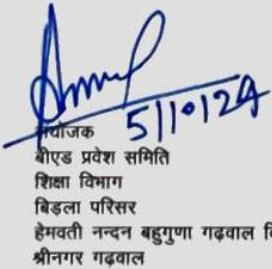 5/10/24
संयोजक
बीएड प्रवेश समिति
शिक्षा विभाग
बिड़ला परिसर
हेमवती नन्दन बहुगुणा गढ़वाल
श्रीनगर गढ़वाल